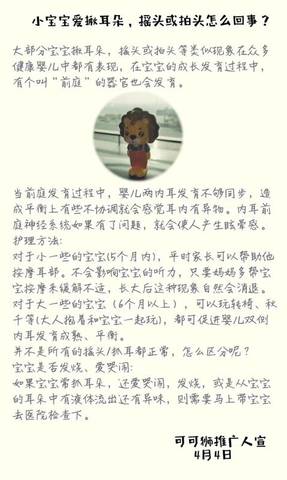 小宝宝爱揪耳朵，摇头或拍头怎么回事？
大部分宝宝揪耳朵，摇头或拍头等类似现象在众多
健康婴儿中都有表现，在宝宝的成长发育过程中，
有个叫“前庭”的器官也会发育。
当前庭发育过程中，婴儿两内耳发育不够同步，造
成平衡上有些不协调就会感觉耳内有异物。内耳前
庭神经系统如果有了问题，就会使人产生眩晕感。
护理方法：
对于小一些的宝宝(5个月内)，平时家长可以帮助他
按摩耳部。不会影响宝宝的听力，只要妈妈多帮宝
宝按摩来缓解不适，长大后这种现象自然会消退。
对于大一些的宝宝（6个月以上），可以玩转椅、秋
千等(大人抱着和宝宝一起玩)，都可促进婴儿双侧
内耳发育成熟、平衡。
并不是所有的摇头/抓耳都正常，怎么区分呢？
宝宝是否发烧、爱哭闹：
如果宝宝常抓耳朵，还爱哭闹，发烧，或是从宝宝
的耳朵中有液体流出还有异味，则需要马上带宝宝
去医院检查下。
可可狮推广人宣
4月4日